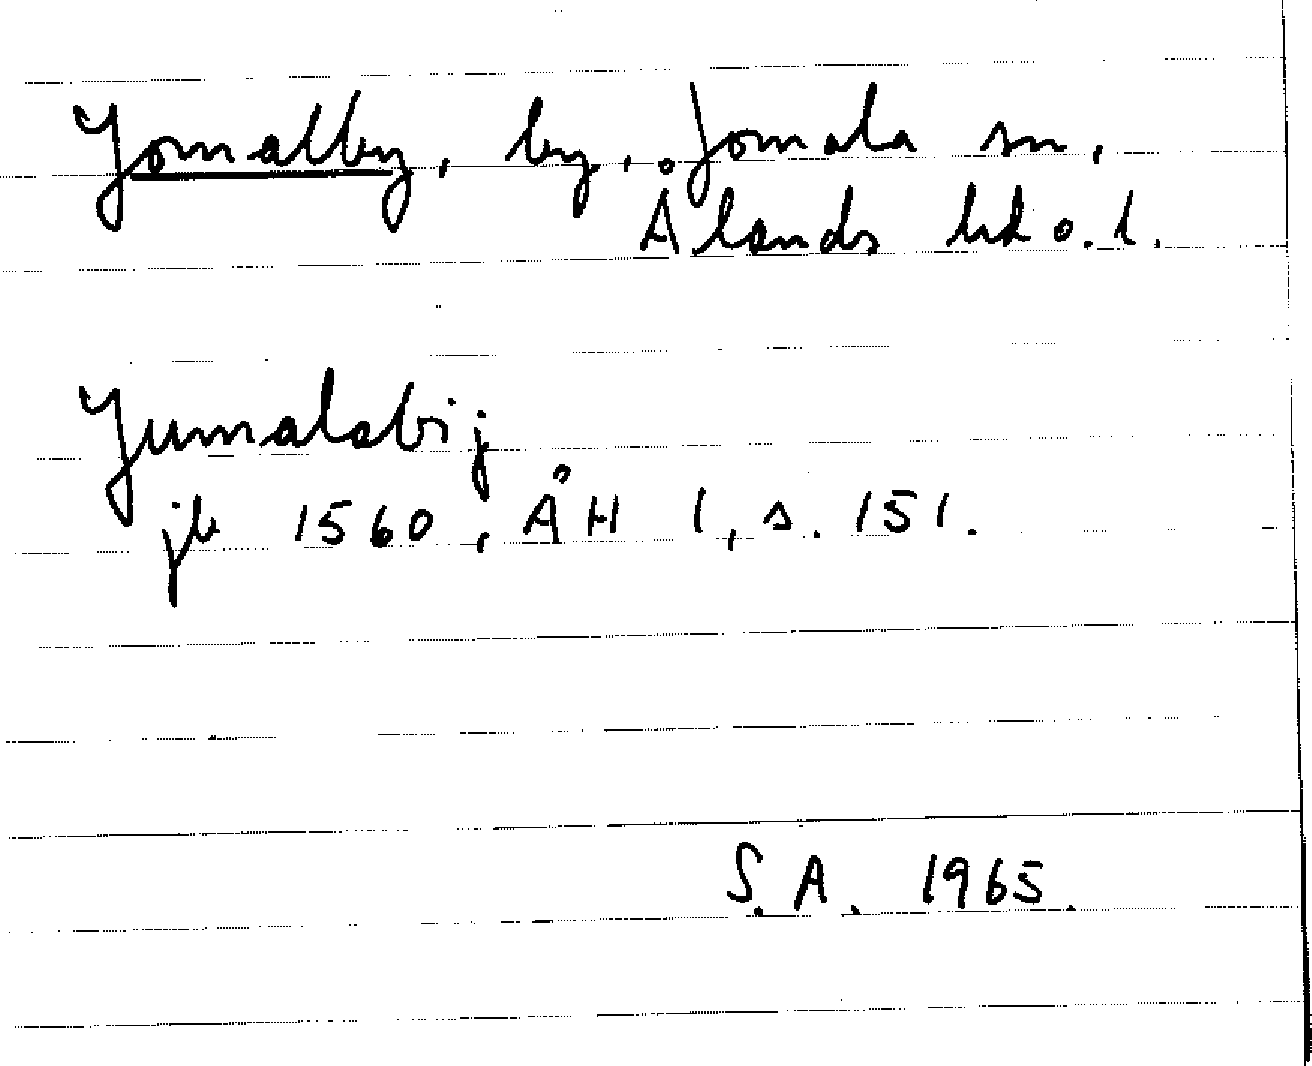 Jomalby, by, Jomala sn,
Ålands hd o. l.
Jumalabij
jb 1560, ÅH 1, s. 151.
S.A. 1965.